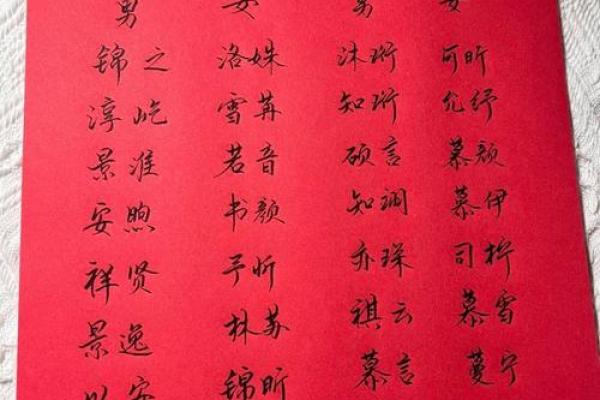 男 女 男 女
锦之 洛姝 沐珩 可昕
淳屹 雪苒 知珩 允纾
景淮 若音 硕言 慕颜
安煦 书颜 知斓 慕伊
祥贤 予昕 亦琛 司柠
景逸 林苏 祺云 慕雪
锦昕 慕言 蔓宁